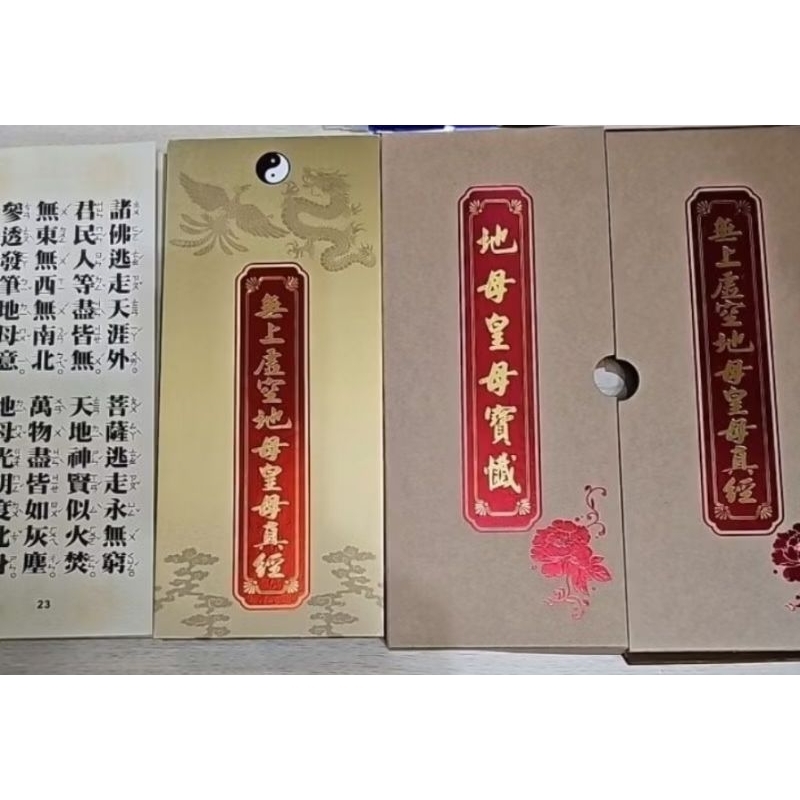 諸佛逃走天涯外。菩薩逃走永無窮。
君民人等盡皆無。天地神賢似火焚。
無東無西無南北。萬物盡皆如灰塵。
參透發筆地母意。地母光明度化身。
23
無上虛空地母皇母真經
地母皇母寶懺
無上虛空地母皇母真經